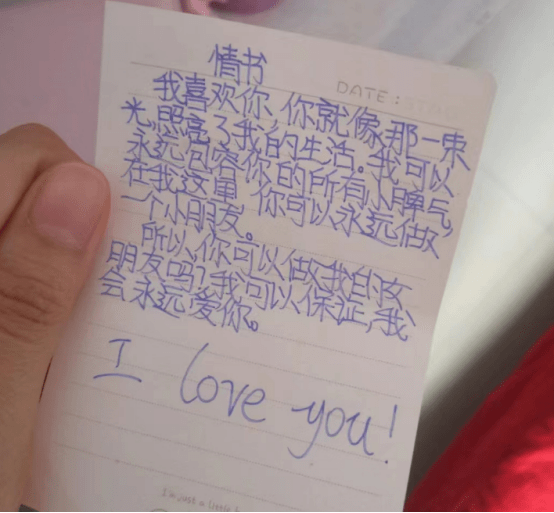 情书
DATE:
我喜欢你,你就像那一束
光,照亮了我的生活。我可以
永远包容你的所有小脾气,
在我这里,你可以永远做
一个小朋友。
所以,你可以做我的女
朋友吗?我可以保证,我
会永远爱你。
I love you!
I'm just a little